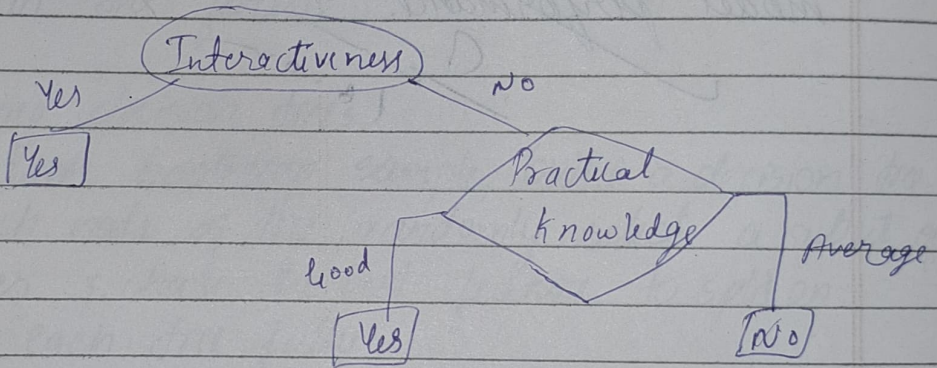 Interactiveness
Yes
NO
Yes
Practical
Knowledge
Good
Average
Yes
No